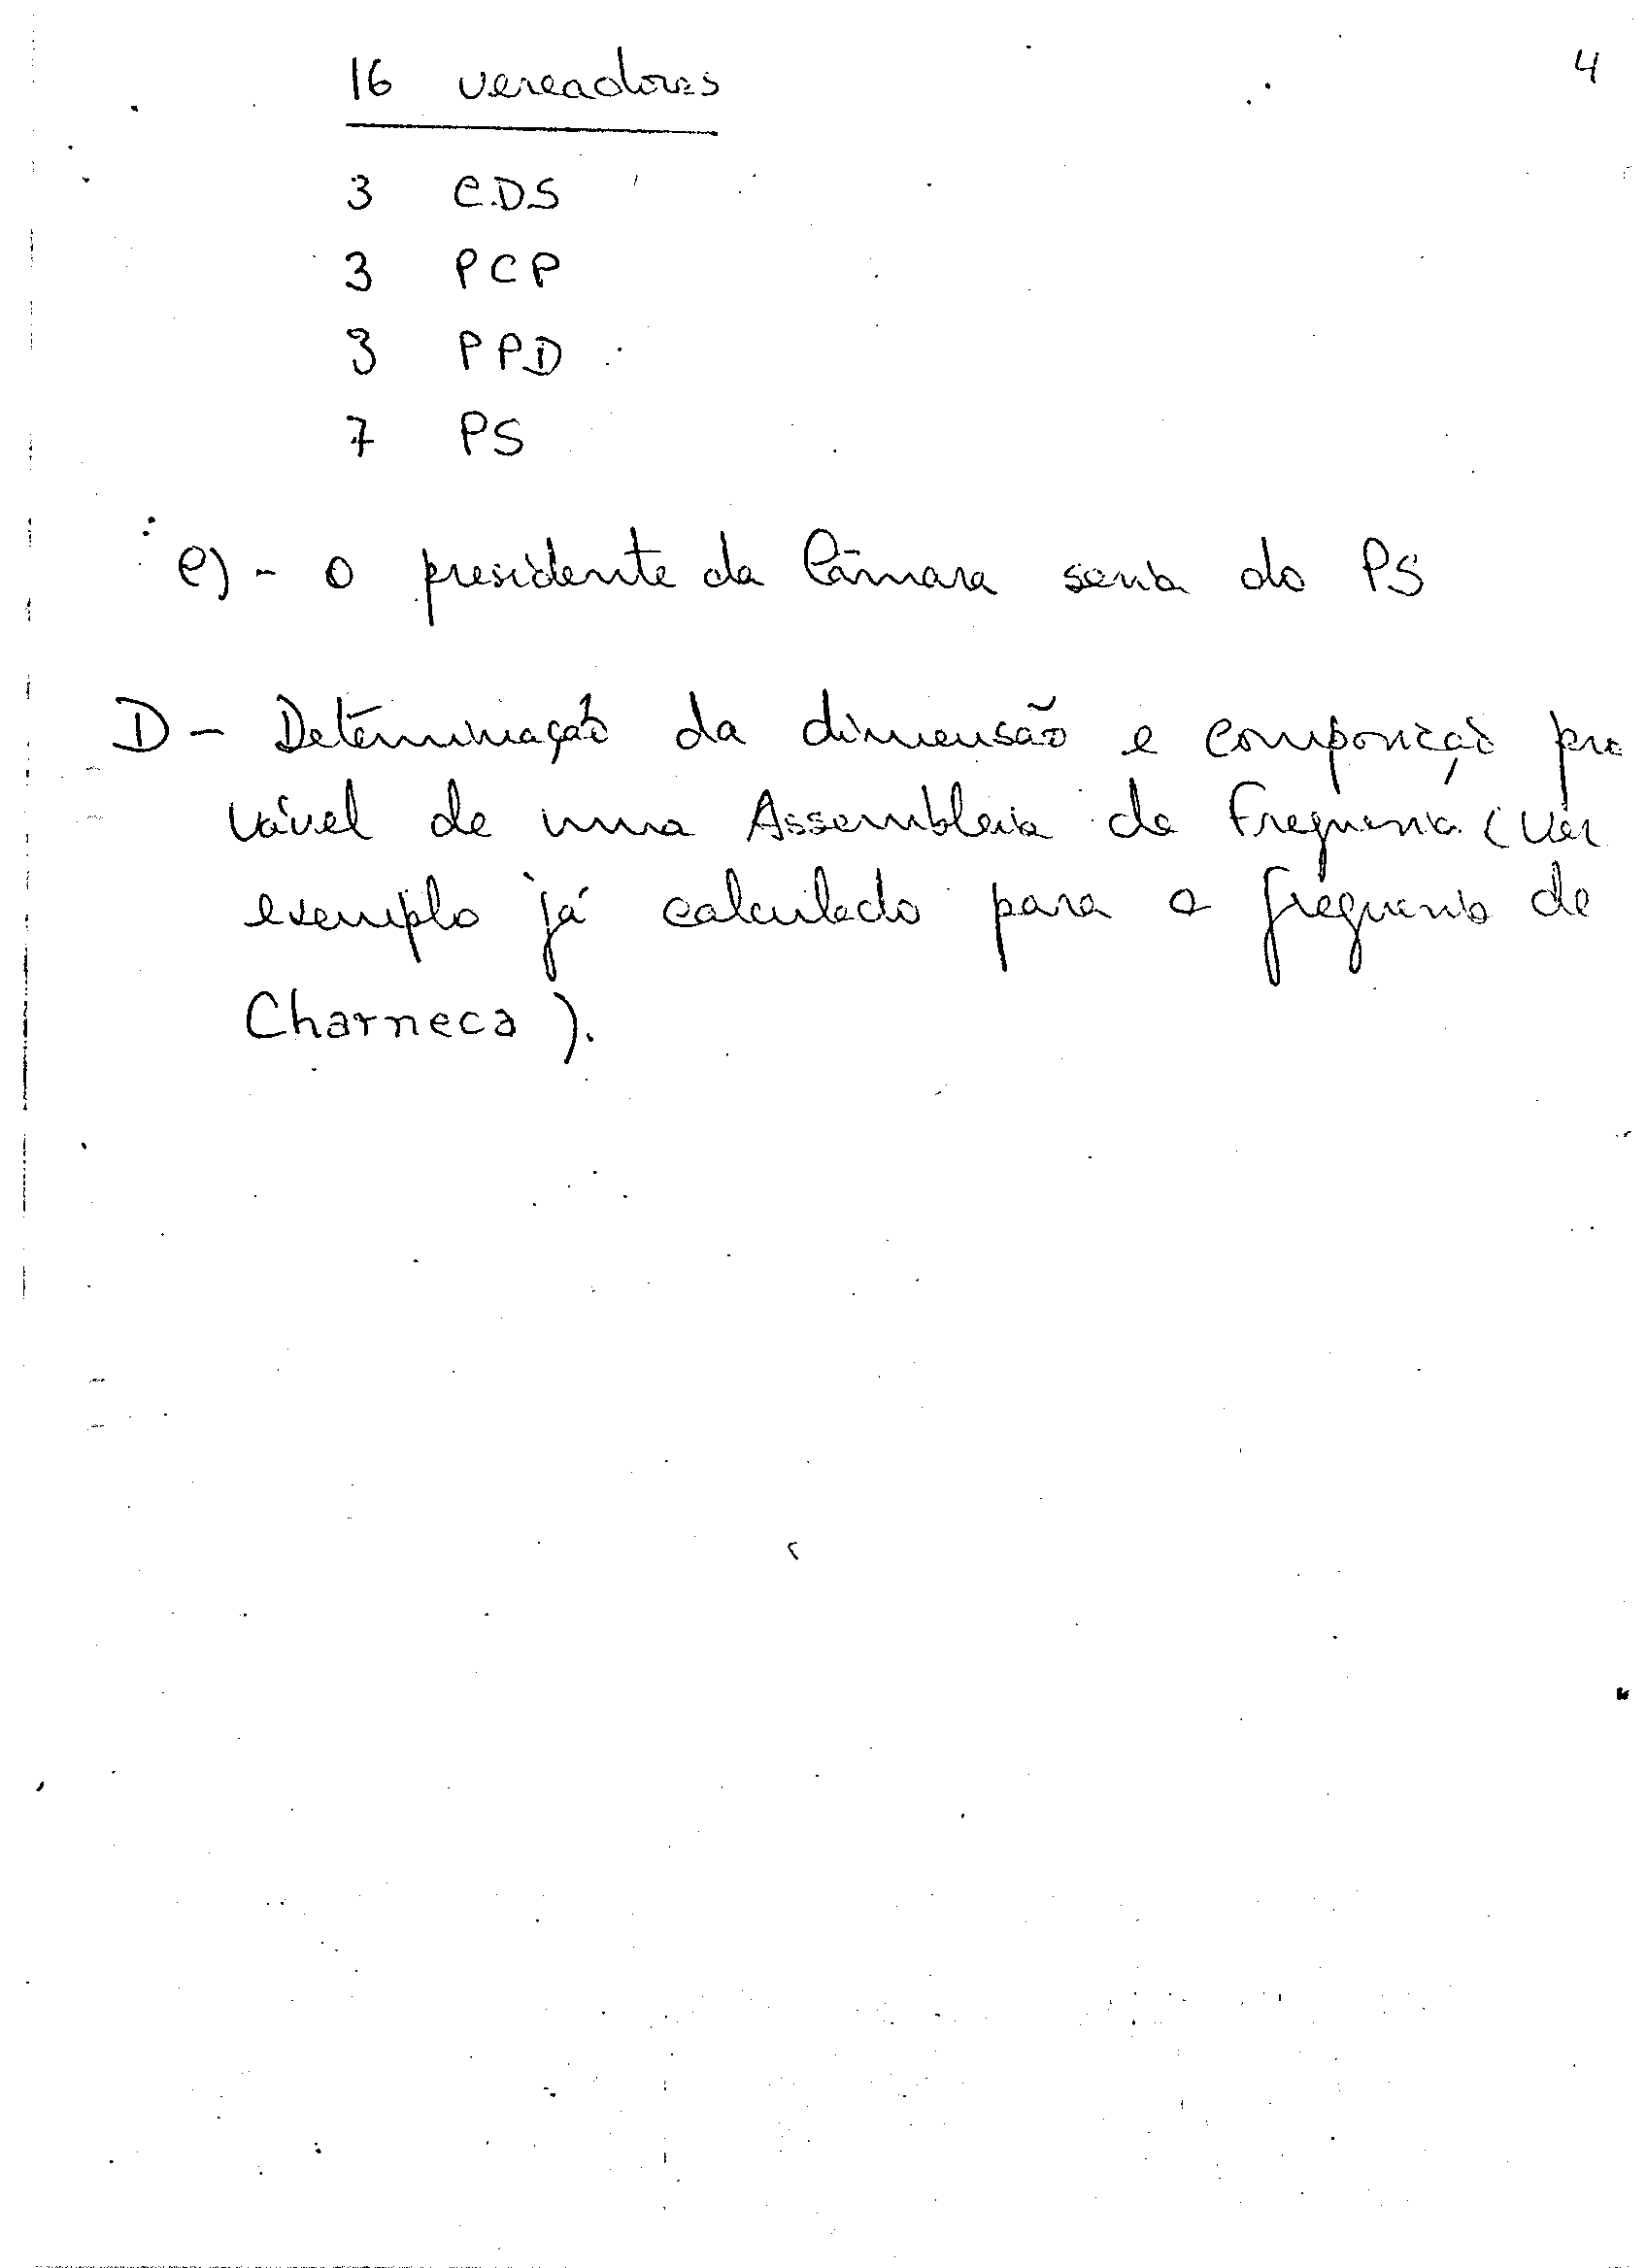 4
16 vereadores
3 CDS
3 PCP
3 PPD
7 PS
e) - O presidente da Câmara seria do PS
D - Determinação da dimensão e composição pro
vável de uma Assembleia de Freguesia (ver
exemplo já calculado para a freguesia de
Charneca).